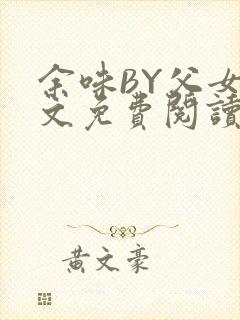 余味BY父女
文免费閱讀
黄文豪